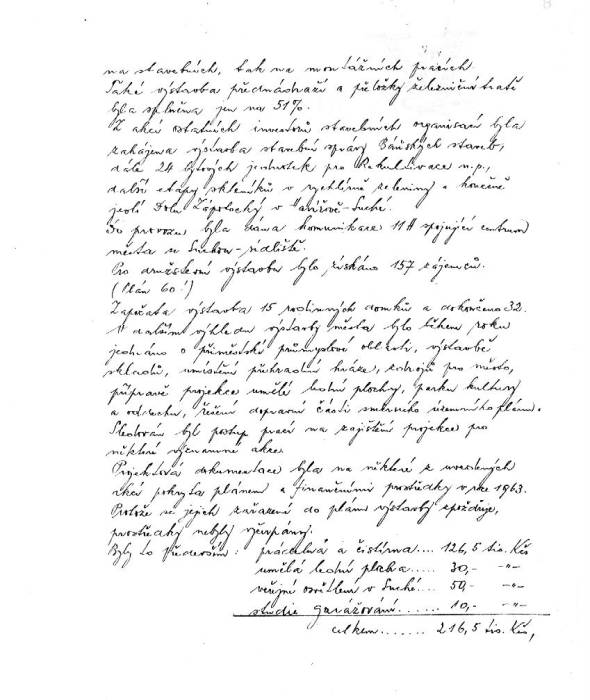 na stavebních, tak na montážních pracích
Také výstavba přednádraží a přeložky železniční tratě
byla splněna jen na 51%.
Z akcí ostatních investorů stavebních organisací byla
zahájena výstavba stavební správy Báňských staveb,
dále 24 bytových jednotek pro Rekultivace n.p.,
další etapy skleníků v rychlírně zeleniny a konečně
jeslí Dolu Zápotocký, v Havířově-Suché.
Do provozu byla dána komunikace 11 spojující centrum
města se Suchou-sídliště.
Pro družstevní výstavbu bylo získáno 157 zájemců.
(Plán 60!)
Započata výstavba 15 rodinných domků a dokončeno 32.
V dalším výhledu výstavby města bylo během roku
jednáno o příměstské průmyslové oblasti, výstavbě
skladů, umístění přehradní hráze, zdrojů pro město,
přípravě projekce umělé lední plochy, parku kultury
a oddechu, řešení dopravní části směrného územního plánu.
Sledován byl postup prací na zajištění projekce pro
některé významné akce.
Projektová dokumentace byla na některé z uvedených
akcí pokryta plánem a finančními prostředky v roce 1963.
Protože se jejich zařazení do plánu výstavby opožďuje,
prostředky nebyly vyčerpány.
Byly to především: prádelna a čistírna.... 126,5 tis. Kčs
umělá lední plocha..... 30,- -"-
veřejné osvětlení v Suché.... 50,- -"-
studie garážování...... 10,- -"-
celkem....... 216,5 tis. Kčs,